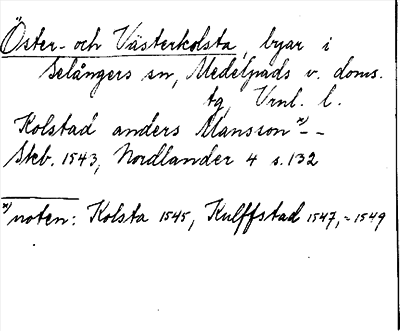 Öster- och Västerkolsta, byar i
Selångers sn, Medelpads v. doms.
tg, Vrnl. l.
Kolstad anders Mansson x) - -
Skb. 1543, Nordlander 4 s. 132
x) noten: Kolsta 1545, Kulffstad 1547, - 1549